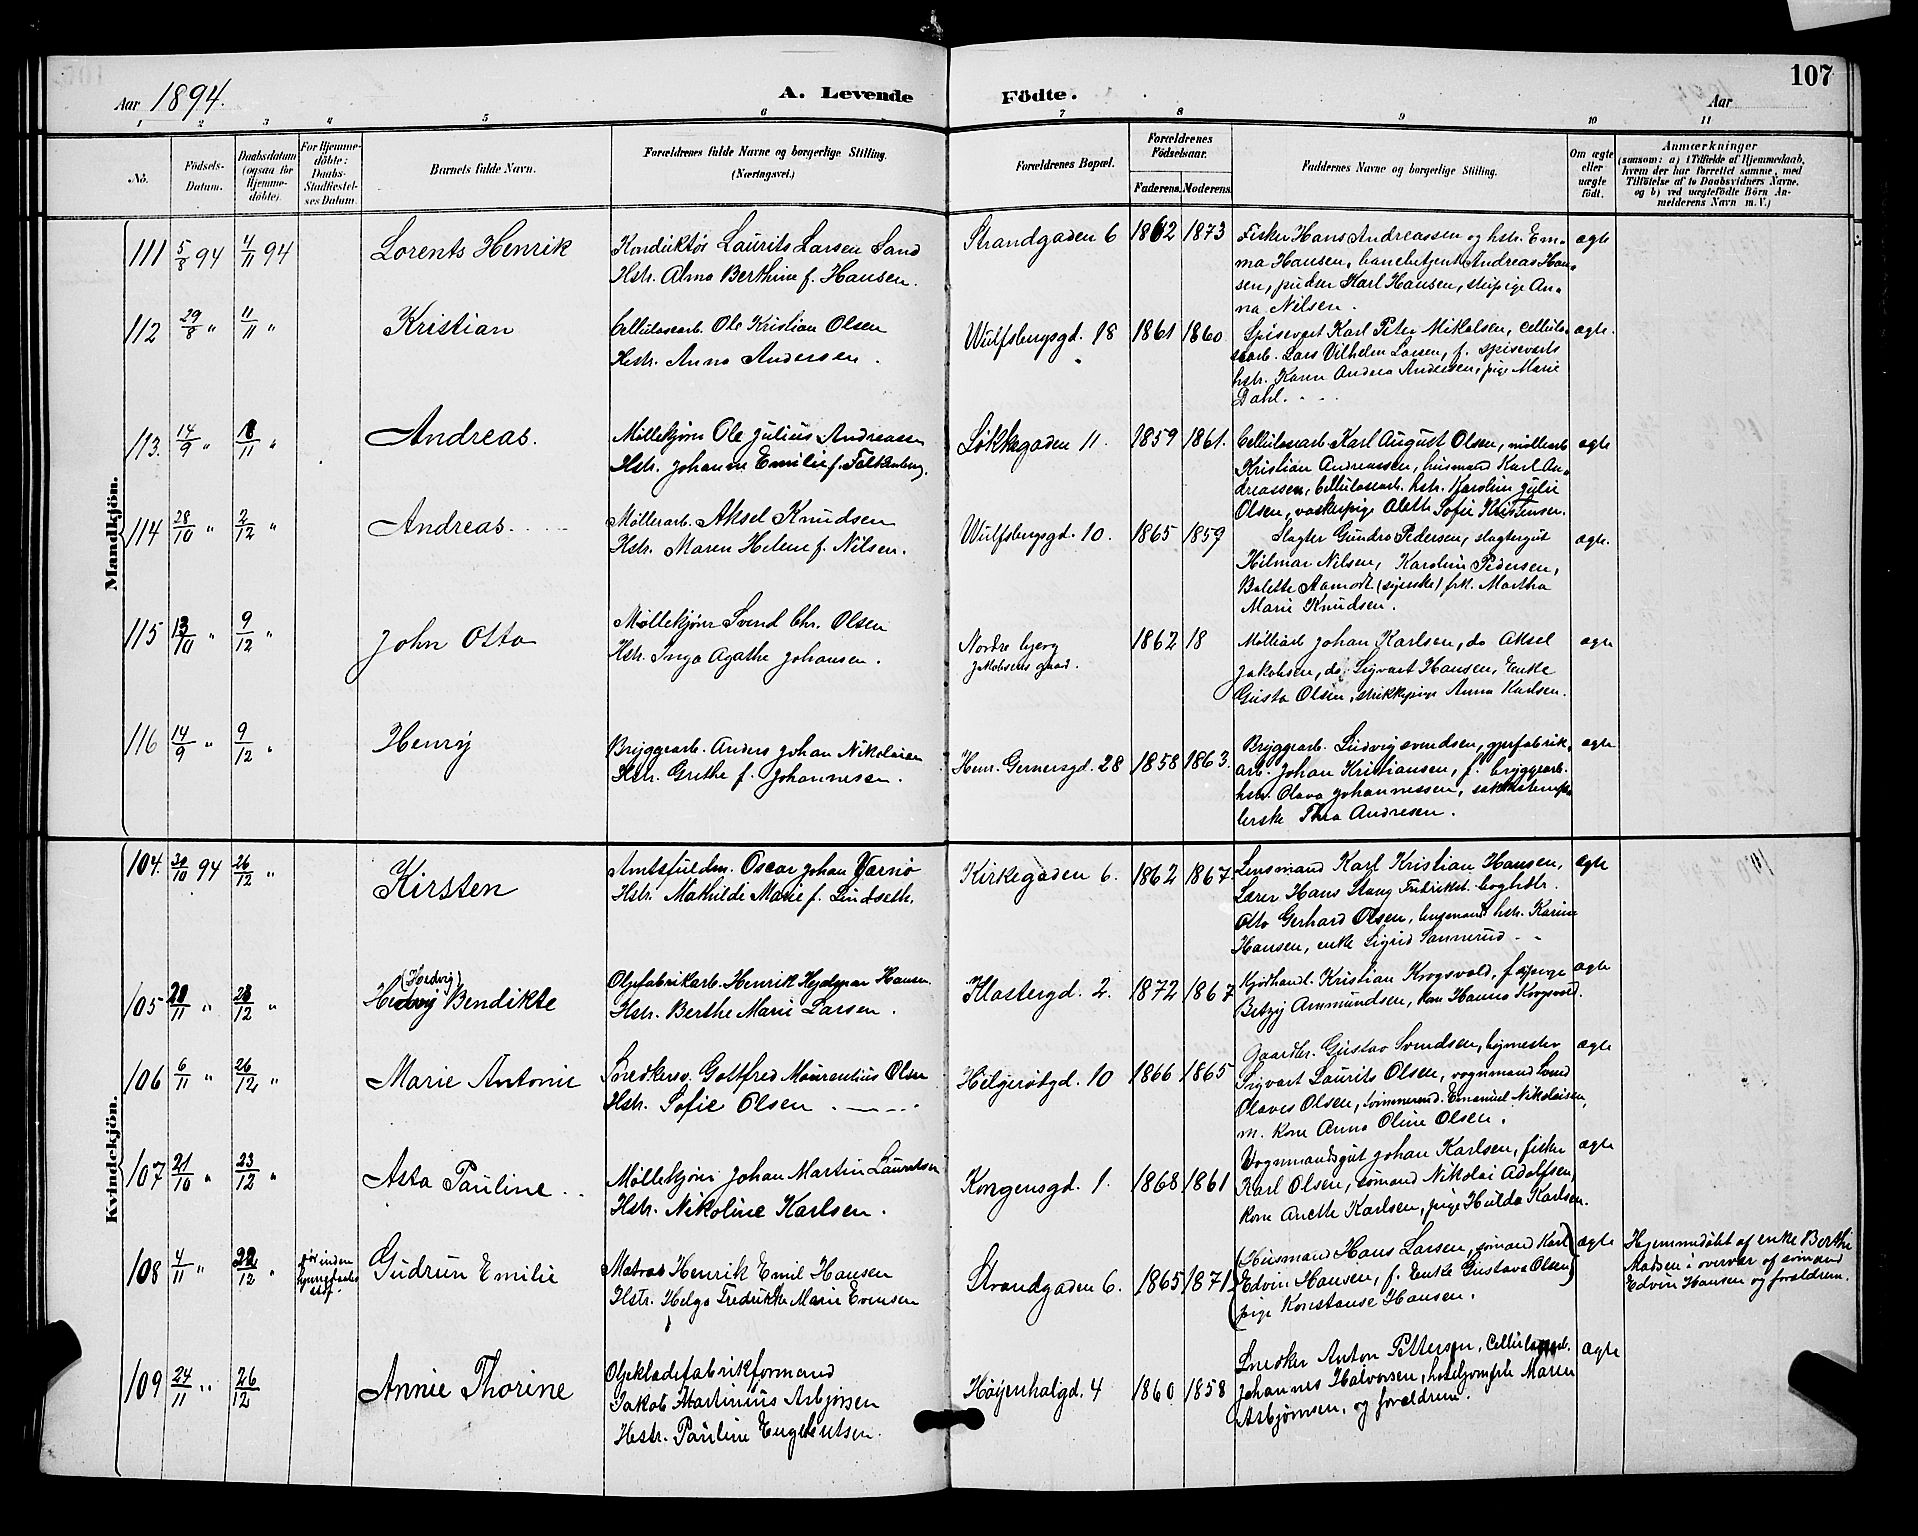 107
Aar 1894.
A. Levende Födte.
Aar
1 2 3 4 5 6 7 8 9 10 11
No.
Födsels-
Datum.
Daabsdatum
(ogsaa for
Hjemme-
döbte).
For Hjemme-
döbte:
Daabs-
Stadfæstel-
ses Datum.
Barnets fulde Navn.
Forældrenes fulde Navne og borgerlige Stilling.
(Næringsvei.)
Forældrenes Bopæl.
Forældrenes
Födselsaar.
Faderens. Moderens.
Faddernes Navne og borgerlige Stilling.
Om ægte
eller
uægte
födt.
Anmærkninger
(saasom: a) i Tilfælde af Hjemmedaab,
hvem der har forrettet samme, med
Tilföielse af to Daabsvidners Navne,
og b) ved uægtefödte Börn An-
melderens Navn m. V.)
Mandkjön.
111 5/8 94 4/11 94 Lorents Henrik
Konduktör Laurits Larsen Sand
Hstr. Alma Berthine f. Hansen.
Strandgaden 6 1862 1873
Fisker Hans Andreassen og hstr. Em-
ma Hansen, banebetjent Andreas Han-
sen, Karl Hansen, An-
na Nilsen.
ægte
112 29/8 " 11/11 " Kristian
Cellulosearb. Ole Kristian Olsen
Hstr. Anna Andersen.
Wulfsbergsgd. 18 1861 1860
Spisevert Karl Peter Mikalsen, cellulo-
searb. Lars Vilhelm Larsen, f. spiseverts
hstr. Karen Andrea Andersen, pige Marie
Dahl.
ægte.
113. 14/9 " 18/11 " Andreas.
Møllekjörer Ole Julius Andreassen
Hstr. Johanne Emilie f. Falkenberg.
Løkkegaden 11. 1859 1861.
Cellulosearb. Karl August Olsen, møllearb.
Kristian Andreassen, husmand Karl An-
dreassen, Cellulosearb. hstr. Karoline Julie
Olsen, vaskepige Alette Sofie Kristensen.
ægte
114 28/10 " 2/12 " Andreas.
Møllerarb. Aksel Knudsen
Hstr. Maren Helene f. Nilsen.
Wulfsbergsgd. 10. 1865 1859
Slagter Gundro Pedersen, slagtergut
Hilmar Nilsen, Karoline Pedersen,
Balette Aamodt (syerske) frk. Martha
Marie Knudsen.
ægte.
115 13/10 " 9/12 " John Otto
Møllekjörer Svend Chr. Olsen
Hstr. Inga Agathe Johansen.
Nordre bjerg
Jakobsens gaard.
1862 18
Møllearb. Johan Karlsen, do Aksel
Jakobsen, do. Sigvart Hansen, Enke
Gusta Olsen, strikkepige Anna Karlsen.
ægte
116 14/9 " 9/12 " Henry
Bryggearb. Anders Johan Nikolaisen
Hstr. Grethe f. Johannesen.
Henr. Gernersgd. 28 1858 1863.
Bryggearb. Ludvig Svendsen, gjærfabrik-
arb. Johan Kristiansen, f. bryggearb.
hstr. Olava Johannessen,
Thea Andresen.
ægte
Kvindekjön.
104. 30/10 94 26/12 " Kirsten
Amtsfuldm. Oscar Johan Værnø
Hstr. Mathilde Marie f. Lindseth.
Kirkegaden 6. 1862 1867
Lensmand Karl Kristian Hansen,
Lærer Hans Stang Fredrikst. boghdlr.
Otto Gerhard Olsen, lensmand hstr. Karine
Hansen, enke Sigrid Sannerud.
ægte
105 28/11 " 26/12 " (Hedvig) Hedvig Bendikte
Oljefabrikarb. Henrik Hjalmar Hansen
Hstr. Berthe Marie Larsen.
Klostergd. 2. 1872 1867
Kjødhandl. Kristian Krogsvold, f.
Betzy Ammundsen, Hanna Krogsvold.
ægte
106 6/11 " 26/12 " Marie Antonie
Snedkersv. Gottfred Maurentius Olsen
Hstr. Sofie Olsen.
Helgerödgd. 10 1866 1865
Gaardbr. Gustav Svendsen,
Sigvart Laurits Olsen, vognmand Svend
Olaves Olsen, tömmermd. Emanuel Nikolaisen,
m. kone Anna Oline Olsen.
ægte
107 21/10 " 23/12 " Asta Pauline
Møllekjörer Johan Martin Lauritsen
Hstr. Nikoline Karlsen.
Kongensgd. 1. 1868 1861
Vognmandsgut Johan Karlsen, fisker
Karl Olsen, sömand Nikolai Adolfsen,
kone Anette Karlsen, pige Hulda Karlsen.
ægte
108 4/11 " 22/12 " Gudrun Emilie
Matros Henrik Emil Hansen
Hstr. Helga Fredrikke Marie Evensen
Strandgaden 6. 1865 1871
(Husmand Hans Larsen, sömand Karl
Edvin Hansen, f. Enke Gustava Olsen)
pige Konstanse Hansen.
ægte
Hjemmedöbt af enke Berthe
Madsen i overvær af sömand
Edvin Hansen og forældrene.
109 24/11 " 26/12 Annie Thorine
Oljeklædefabrikformand
Jakob Martinius Asbjørsen
Hstr. Pauline Engebretsen.
Høyenhalgd. 4 1860 1858
Snedker Anton Pettersen, Cellulosearb.
Johannes Halvorsen, hoteljomfru Maren
Asbjørnsen, og forældrene.
ægte